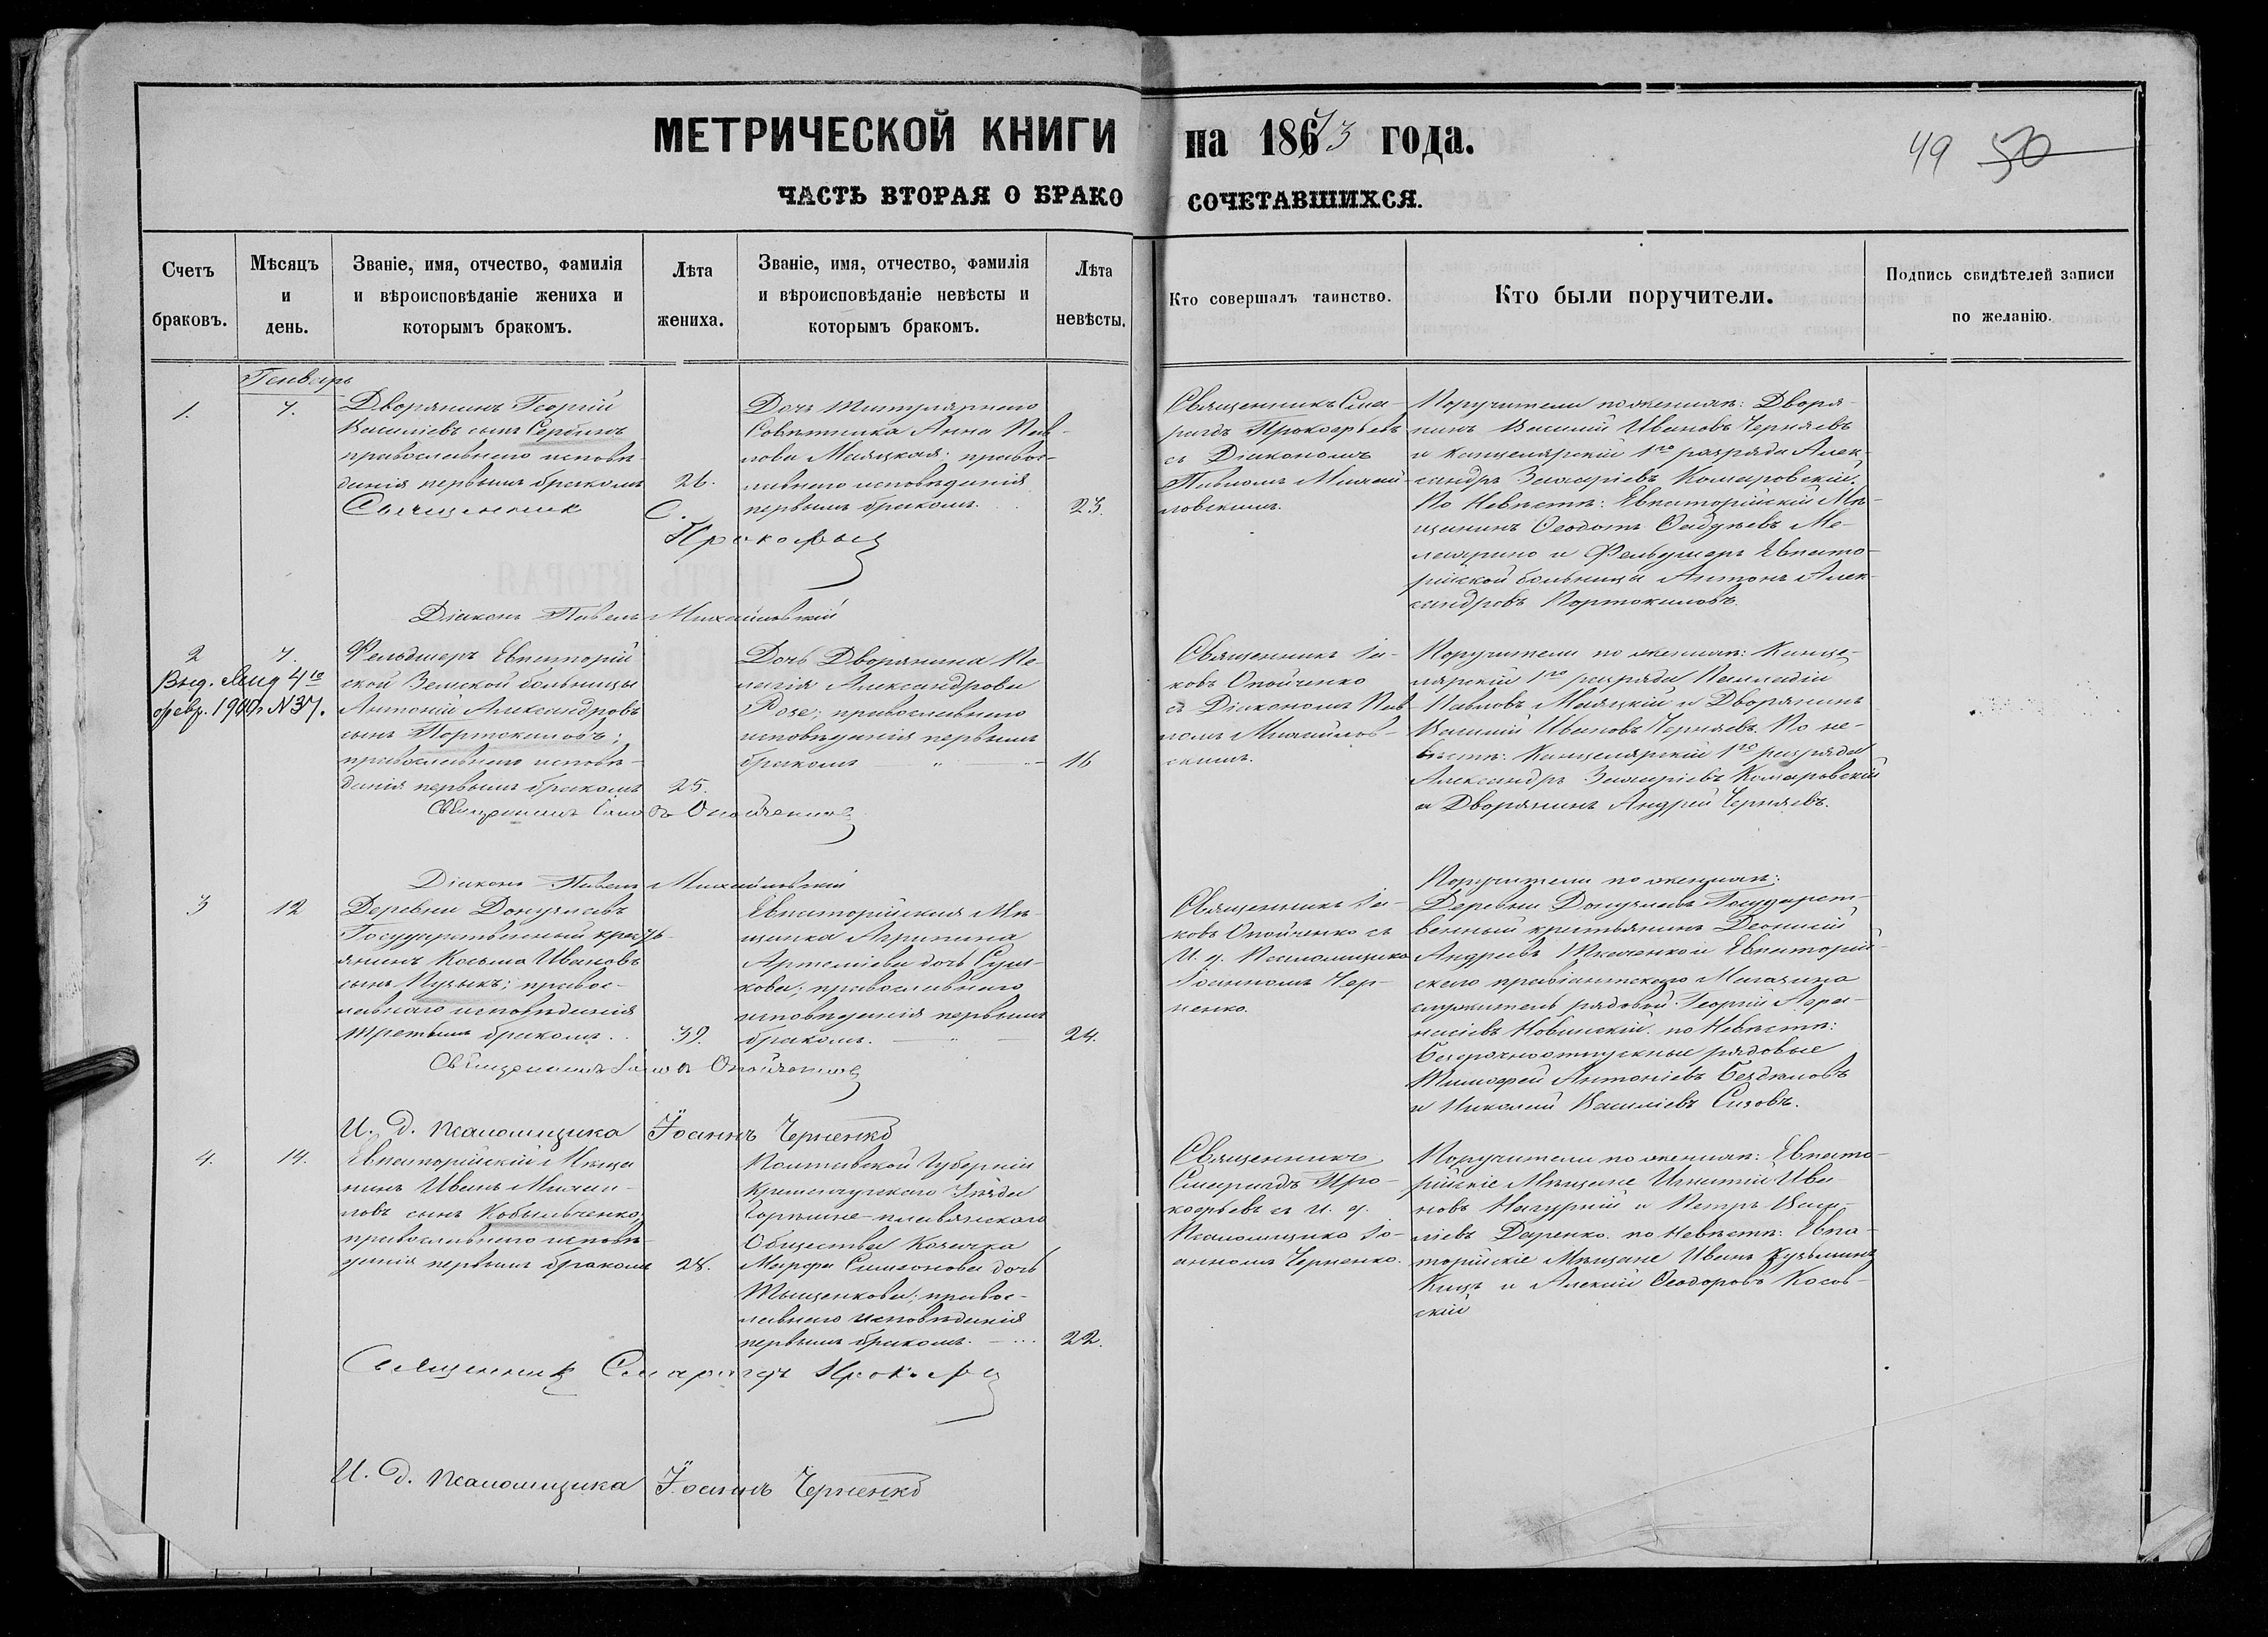 МЕТРИЧЕСКОЙ КНИГИ на 1873 года.
49 50
ЧАСТЬ ВТОРАЯ О БРАКОСОЧЕТАВШИХСЯ.
Счетъ браковъ.
Мѣсяцъ и день.
Званіе, имя, отчество, фамилія
и вѣроисповѣданіе жениха и
которымъ бракомъ.
Лѣта жениха.
Званіе, имя, отчество, фамилія
и вѣроисповѣданіе невѣсты и
которымъ бракомъ.
Лѣта невѣсты.
Кто совершалъ таинство.
Кто были поручители.
Подпись свидѣтелей записи
по желанію.
Генварь
1.
7.
Дворянинъ Георгій
Василіевъ сынъ Сербинъ
православнаго исповѣ-
данія первымъ бракомъ
26.
Дочь Титулярнаго
Совѣтника Анна Пав-
лова Маяцкая; правос-
лавнаго исповѣданія
первымъ бракомъ.
23.
Священникъ Сма-
рагдъ Прокофьевъ
съ Діакономъ
Павломъ Михай-
ловскимъ.
Поручители по женихѣ: Дворя-
нинъ Василій Ивановъ Черняевъ
и канцелярскій 1го разряда Алек-
сандръ Захаріевъ Комаровскій.
По Невѣстѣ: Евпаторійскій Мѣ-
щанинъ Ѳеодотъ
и Фельдшеръ Евпато-
рійской больницы Антонъ Алек-
сандровъ Портокаловъ.
Священникъ С. Прокофьевъ
Діаконъ Павелъ Михайловскій
2
7.
Выд. 4го
февр. 190 N 37.
Фельдшеръ Евпаторій
ской Земской больницы
Антоній Александровъ
сынъ Портокаловъ;
православнаго исповѣ-
данія первымъ бракомъ
25.
Дочь Дворянина Пе-
лагія Александрова
Розе; православнаго
исповѣданія первымъ
бракомъ
16
Священникъ Іа-
ковъ Опойченко
съ Діакономъ Пав-
ломъ Михайлов-
скимъ.
Поручители по женихѣ: Канце-
лярскій 1го разряда Палладій
Павловъ Маяцкій и Дворянинъ
Василій Ивановъ Черняевъ. По не-
вѣстѣ: Канцелярскій 1го разряда
Александръ Захаріевъ Комаровскій
и Дворянинъ Андрей Черняевъ.
Священникъ Іаковъ Опойченко
Діаконъ Павелъ Михайловскій
3
12
Деревни Донузлавъ
Государственный кресть-
янинъ Косьма Ивановъ
сынъ Пузыкъ; правос-
лавнаго исповѣданія
третьимъ бракомъ.
39.
Евпаторійская Мѣ-
щанка Агрипина
Артеміева дочь Суш-
кова; православнаго
исповѣданія первымъ
бракомъ.
24.
Священникъ Іа-
ковъ Опойченко съ
И. д. Псаломщика
Іоанномъ Чер-
ненко.
Поручители по женихѣ:
Деревни Донузлавъ Государст-
венный крестьянинъ Деонисій
Андреевъ Ткаченко и Евпаторій-
скаго провіантскаго Магазина
служитель рядовой Георгій Афа-
насіевъ Новинскій. по Невѣстѣ:
Безсрочноотпускные рядовые
Тимофей Антоніевъ
и Николай Василіевъ Сизовъ.
Священникъ Іаковъ Опойченко
И. д. Псаломщика Іоаннъ Черненко
4.
14.
Евпаторійскій Мѣща
нинъ Иванъ Михаи-
ловъ сынъ Кобыльченко;
православнаго исповѣ-
данія первымъ бракомъ
28.
Полтавской Губерніи
Кременчугскаго Уѣзда
Горѣшне-плавянскаго
Общества Козачка
Марфа Симеонова дочь
Тыщенкова; правос-
лавнаго исповѣданія
первымъ бракомъ.
22.
Священникъ
Смарагдъ Про-
кофьевъ съ И. д.
Псаломщика Іо-
анномъ Черненко.
Поручители по женихѣ: Евпато-
рійскіе Мѣщане Игнатій Ива
новъ и Петръ Васи-
ліевъ Даренко. по Невѣстѣ: Евпа-
торійскіе Мѣщане Иванъ Кузьминъ
Кицъ и Алексій Ѳеодоровъ Косов-
скій
Священникъ Смарагдъ Прокофьевъ
И. д. Псаломщика Іоаннъ Черненко